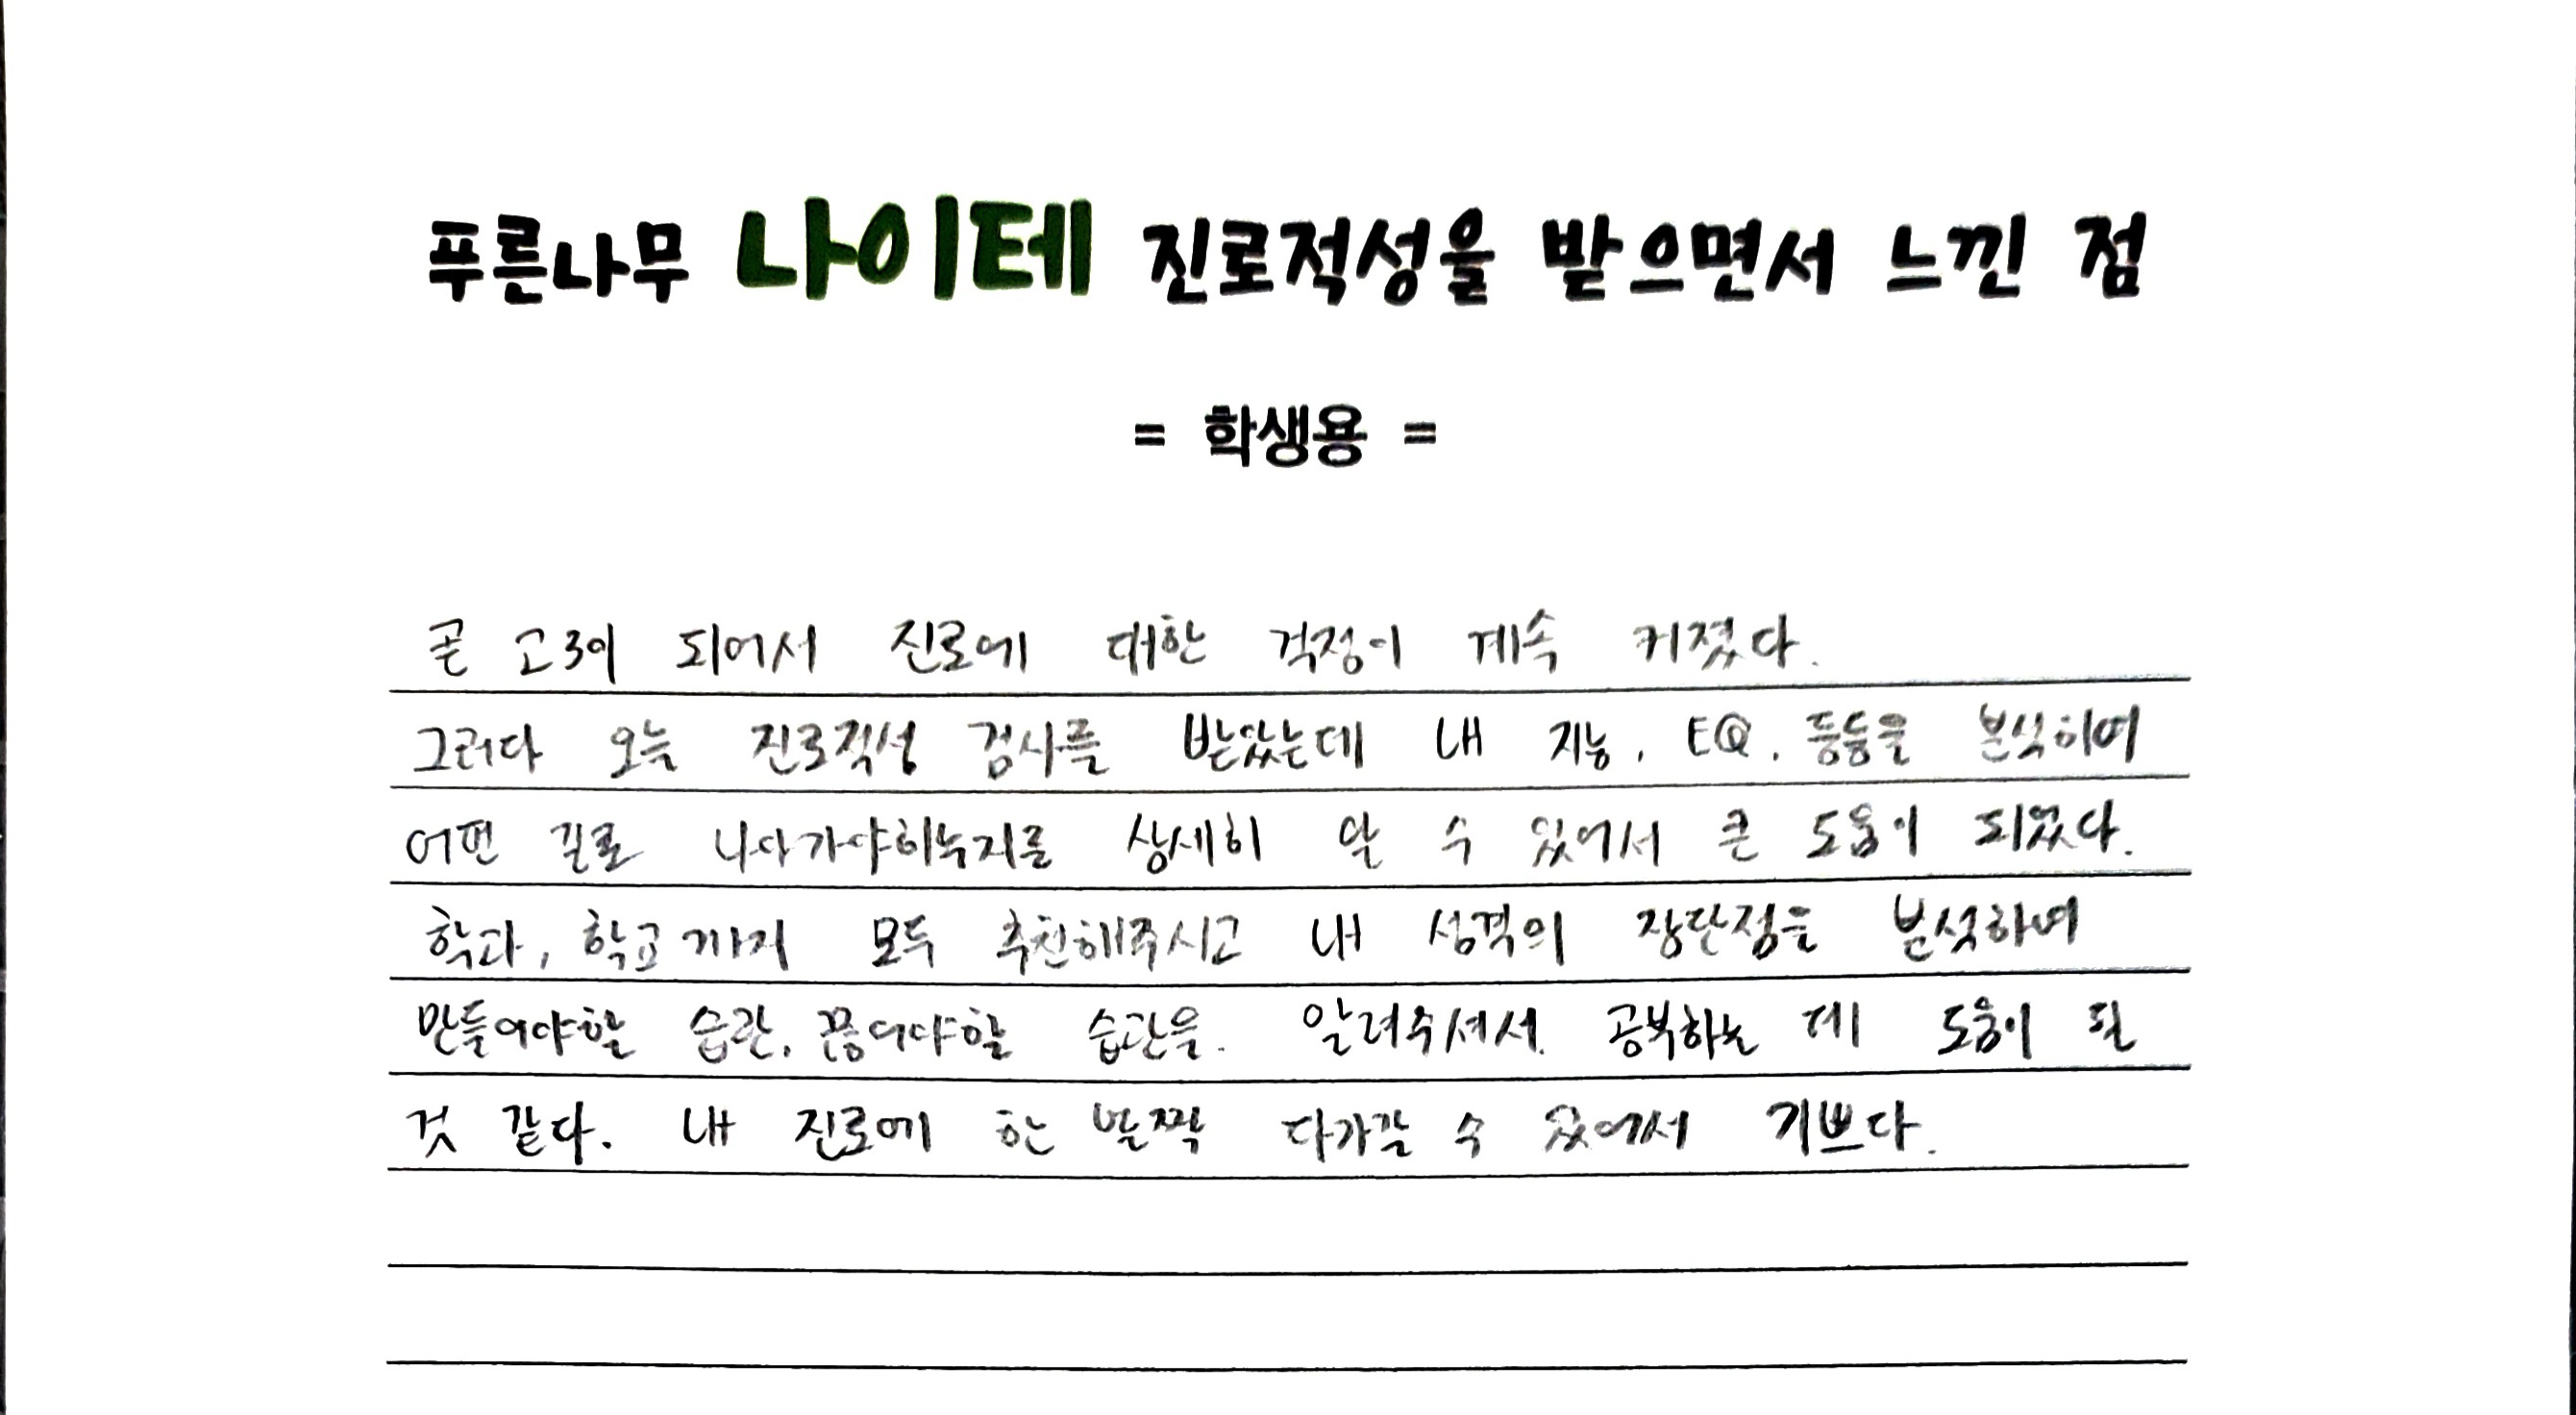 푸른나무 나이테 진로적성을 받으면서 느낀 점
= 학생용 =
곧 고3이 되어서 진로에 대한 걱정이 계속 커졌다.
그러다 오늘 진로적성 검사를 받았는데 내 지능, EQ, 등등을 분석하여
어떤 길로 나아가야하는지를 상세히 알 수 있어서 큰 도움이 되었다.
학과, 학교까지 모두 추천해주시고 내 성격의 장단점을 분석하여
만들어야할 습관, 끊어야할 습관을 알려주셔서 공부하는 데 도움이 될
것 같다. 내 진로에 한 발짝 다가갈 수 있어서 기쁘다.